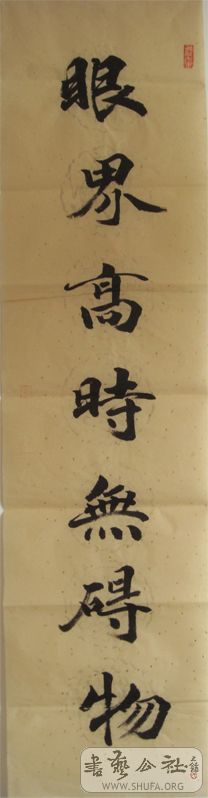 眼界高時無碍物
書藝公社
WWW.SHUFA.ORG